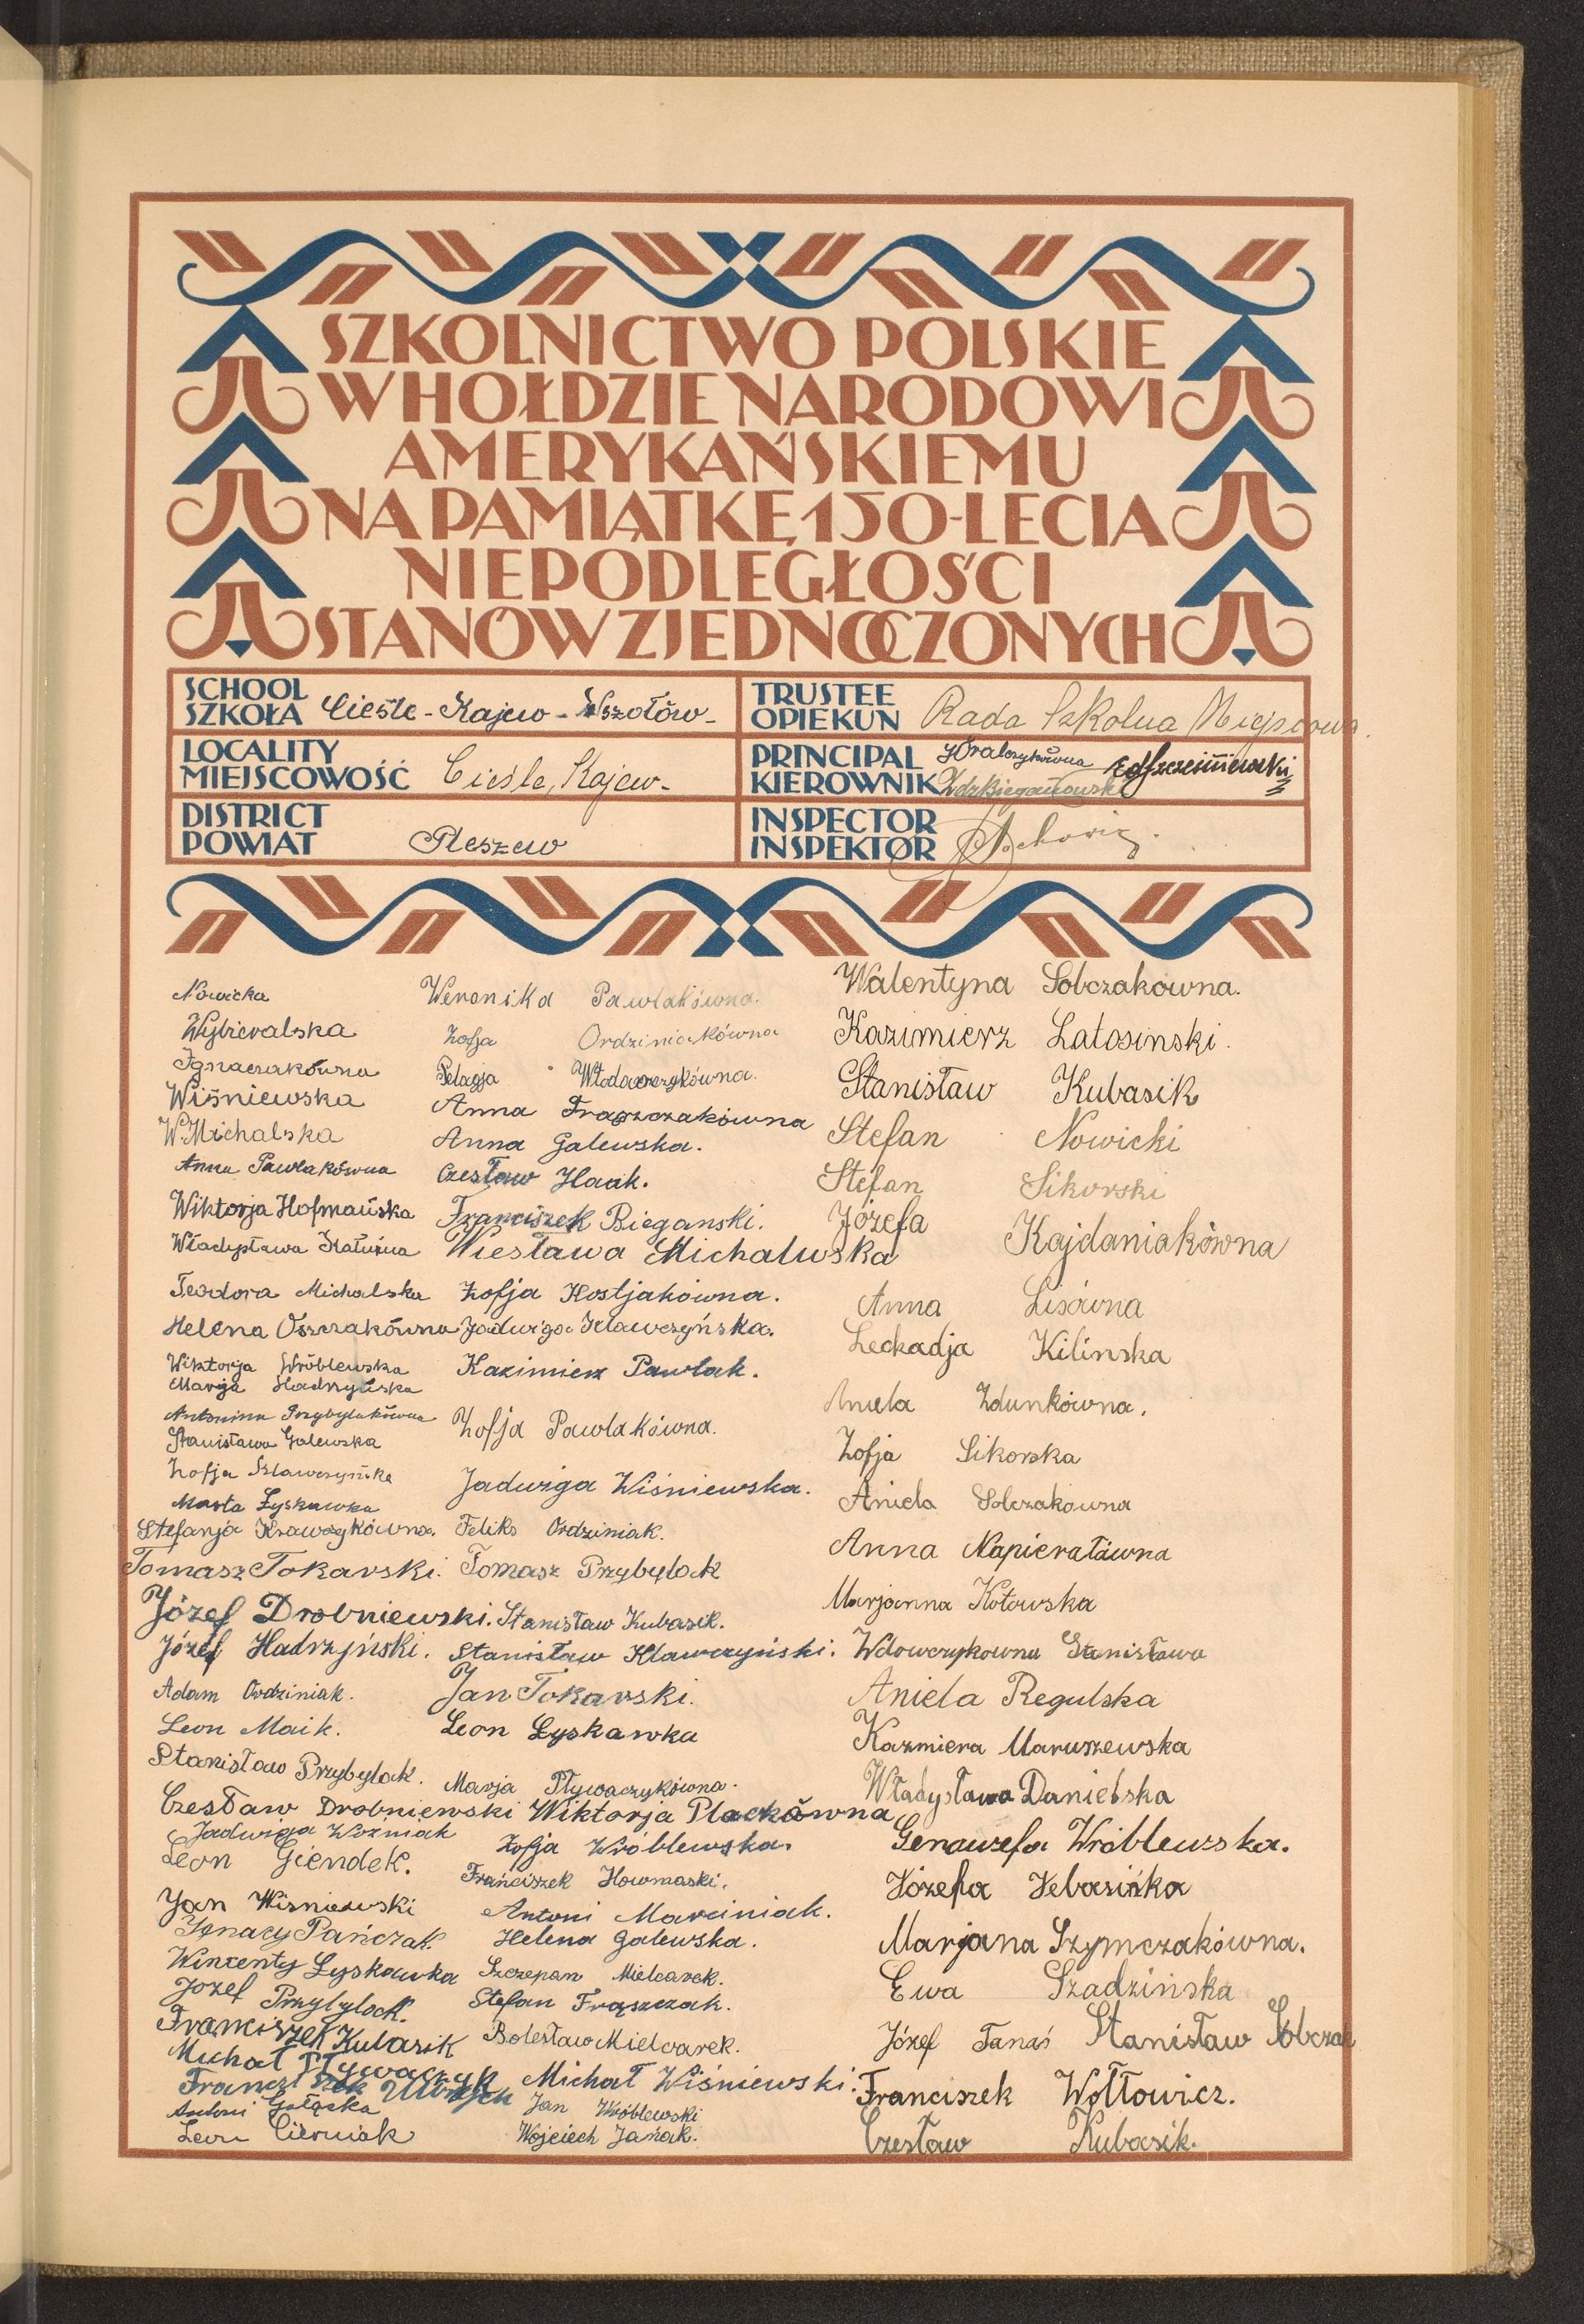 SZKOLNICTWO POLSKIE
W HOŁDZIE NARODOWI
AMERYKAŃSKIEMU
NA PAMIĄTKĘ 150-LECIA
NIEPODLEGŁOŚCI
STANÓW ZJEDNOCZONYCH
SCHOOL
SZKOŁA Cieśle - Kajew - Wszołów -
TRUSTEE
OPIEKUN Rada Szkolna Miejscowa.
LOCALITY
MIEJSCOWOŚĆ Cieśle, Kajew -
PRINCIPAL
KIEROWNIK
DISTRICT
POWIAT Pleszew
INSPECTOR
INSPEKTOR
Nowicka
Wybieralska
Ignaczakówna
Wiśniewska
W. Michalska
Anna Pawlakówna
Wiktorja Hofmańska
Władysława
Teodora Michalska
Helena Oszczakówna
Wiktorja Wróblewska
Marja Hadrzyńska
Antonina Przybylakówna
Stanisława Galewska
Zofja Sklawczyńska
Marta Łyskawka
Stefanja Krawczykówna.
Tomasz Tokarski.
Józef Drobniewski.
Józef Hadrzyński.
Adam Ordziniak.
Leon Maik.
Stanisław Przybylak.
Czesław Drobniewski
Jadwiga Woźniak
Leon Giendek.
Jan Wiśniewski
Ignacy Pańczak
Wincenty Łyskawka
Józef Przybylack.
Franciszek Kubasik
Michał Pływaczyk
Franciszek
Antoni Gałązka
Leon Cierniak
Weronika Pawlakówna.
Zofja Ordziniakówna
Pelagja Włodarczykówna.
Anna Frąszczakówna
Anna Galewska.
Czesław Haak.
Franciszek Bieganski.
Wiesława Michalwska
Zofja Kostjakówna.
Jadwiga Klawczyńska.
Kazimierz Pawlak.
Zofja Pawlakówna.
Jadwiga Wiśniewska.
Feliks Ordziniak.
Tomasz Przybylack
Stanisław Kubasik.
Stanisław Klawczyński.
Jan Tokarski.
Leon Łyskawka
Marja Pływaczykówna.
Wiktorja Plackówna
Zofja Wróblewska.
Franciszek Howmaski.
Antoni Marciniak.
Helena Galewska.
Szczepan Mielcarek.
Stefan Frąszczak.
Bolesław Mielcarek.
Michał Wiśniewski.
Jan Wróblewski
Wojciech Jańak.
Walentyna Sobczakówna.
Kazimierz Latosinski.
Stanisław Kubasik
Stefan Nowicki
Stefan Sikorski
Józefa Kajdaniakówna
Anna Lisówna
Leokadja Kilinska
Aniela Zdunkówna.
Zofja Sikorska
Aniela Sobczakówna
Anna Napierałówna
Marjanna Kotowska
Wdowczykowna Stanisława
Aniela Regulska
Kazmiera Maruszewska
Władysława Danielska
Genowefa Wróblewska.
Józefa
Marjana Szymczakówna.
Ewa Szadzińska
Józef Tanaś Stanisław Sobczak
Franciszek Wołłowicz.
Czesław Kubasik.